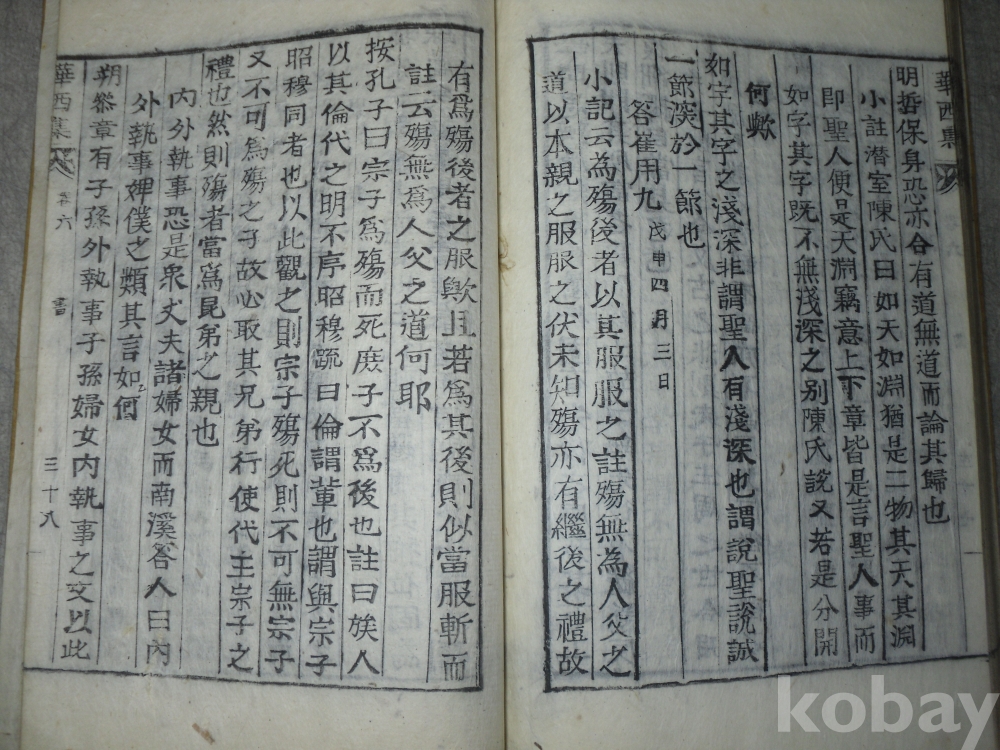 華西集
明哲保身恐亦合有道無道而論其歸也
小註潛室陳氏曰如天如淵猶是二物其天其淵
即聖人便是天淵竊意上下章皆是言聖人事而
如字其字既不無淺深之別陳氏說又若是分開
何歟
如字其字之淺深非謂聖人有淺深也謂說聖說誠
一節深於一節也
答崔用九戊申四月三日
小記云為殤後者以其服服之註殤無為人父之
道以本親之服服之伏未知殤亦有繼後之禮故
有爲殤後者之服歟且若爲其後則似當服斬而
註云殤無爲人父之道何耶
按孔子曰宗子爲殤而死庶子不爲後也註曰族人
以其倫代之明不序昭穆䟽曰倫謂輩也謂與宗子
昭穆同者也以此觀之則宗子殤死則不可無宗子
又不可爲殤之子故必取其兄弟行使代主宗子之
禮也然則殤者當爲昆弟之親也
內外執事恐是衆丈夫諸婦女而南溪答人曰內
外執事婢僕之類其言如何
朔叅章有子孫外執事子孫婦女內執事之文以此
華西集
卷六
書
三十八
kobay